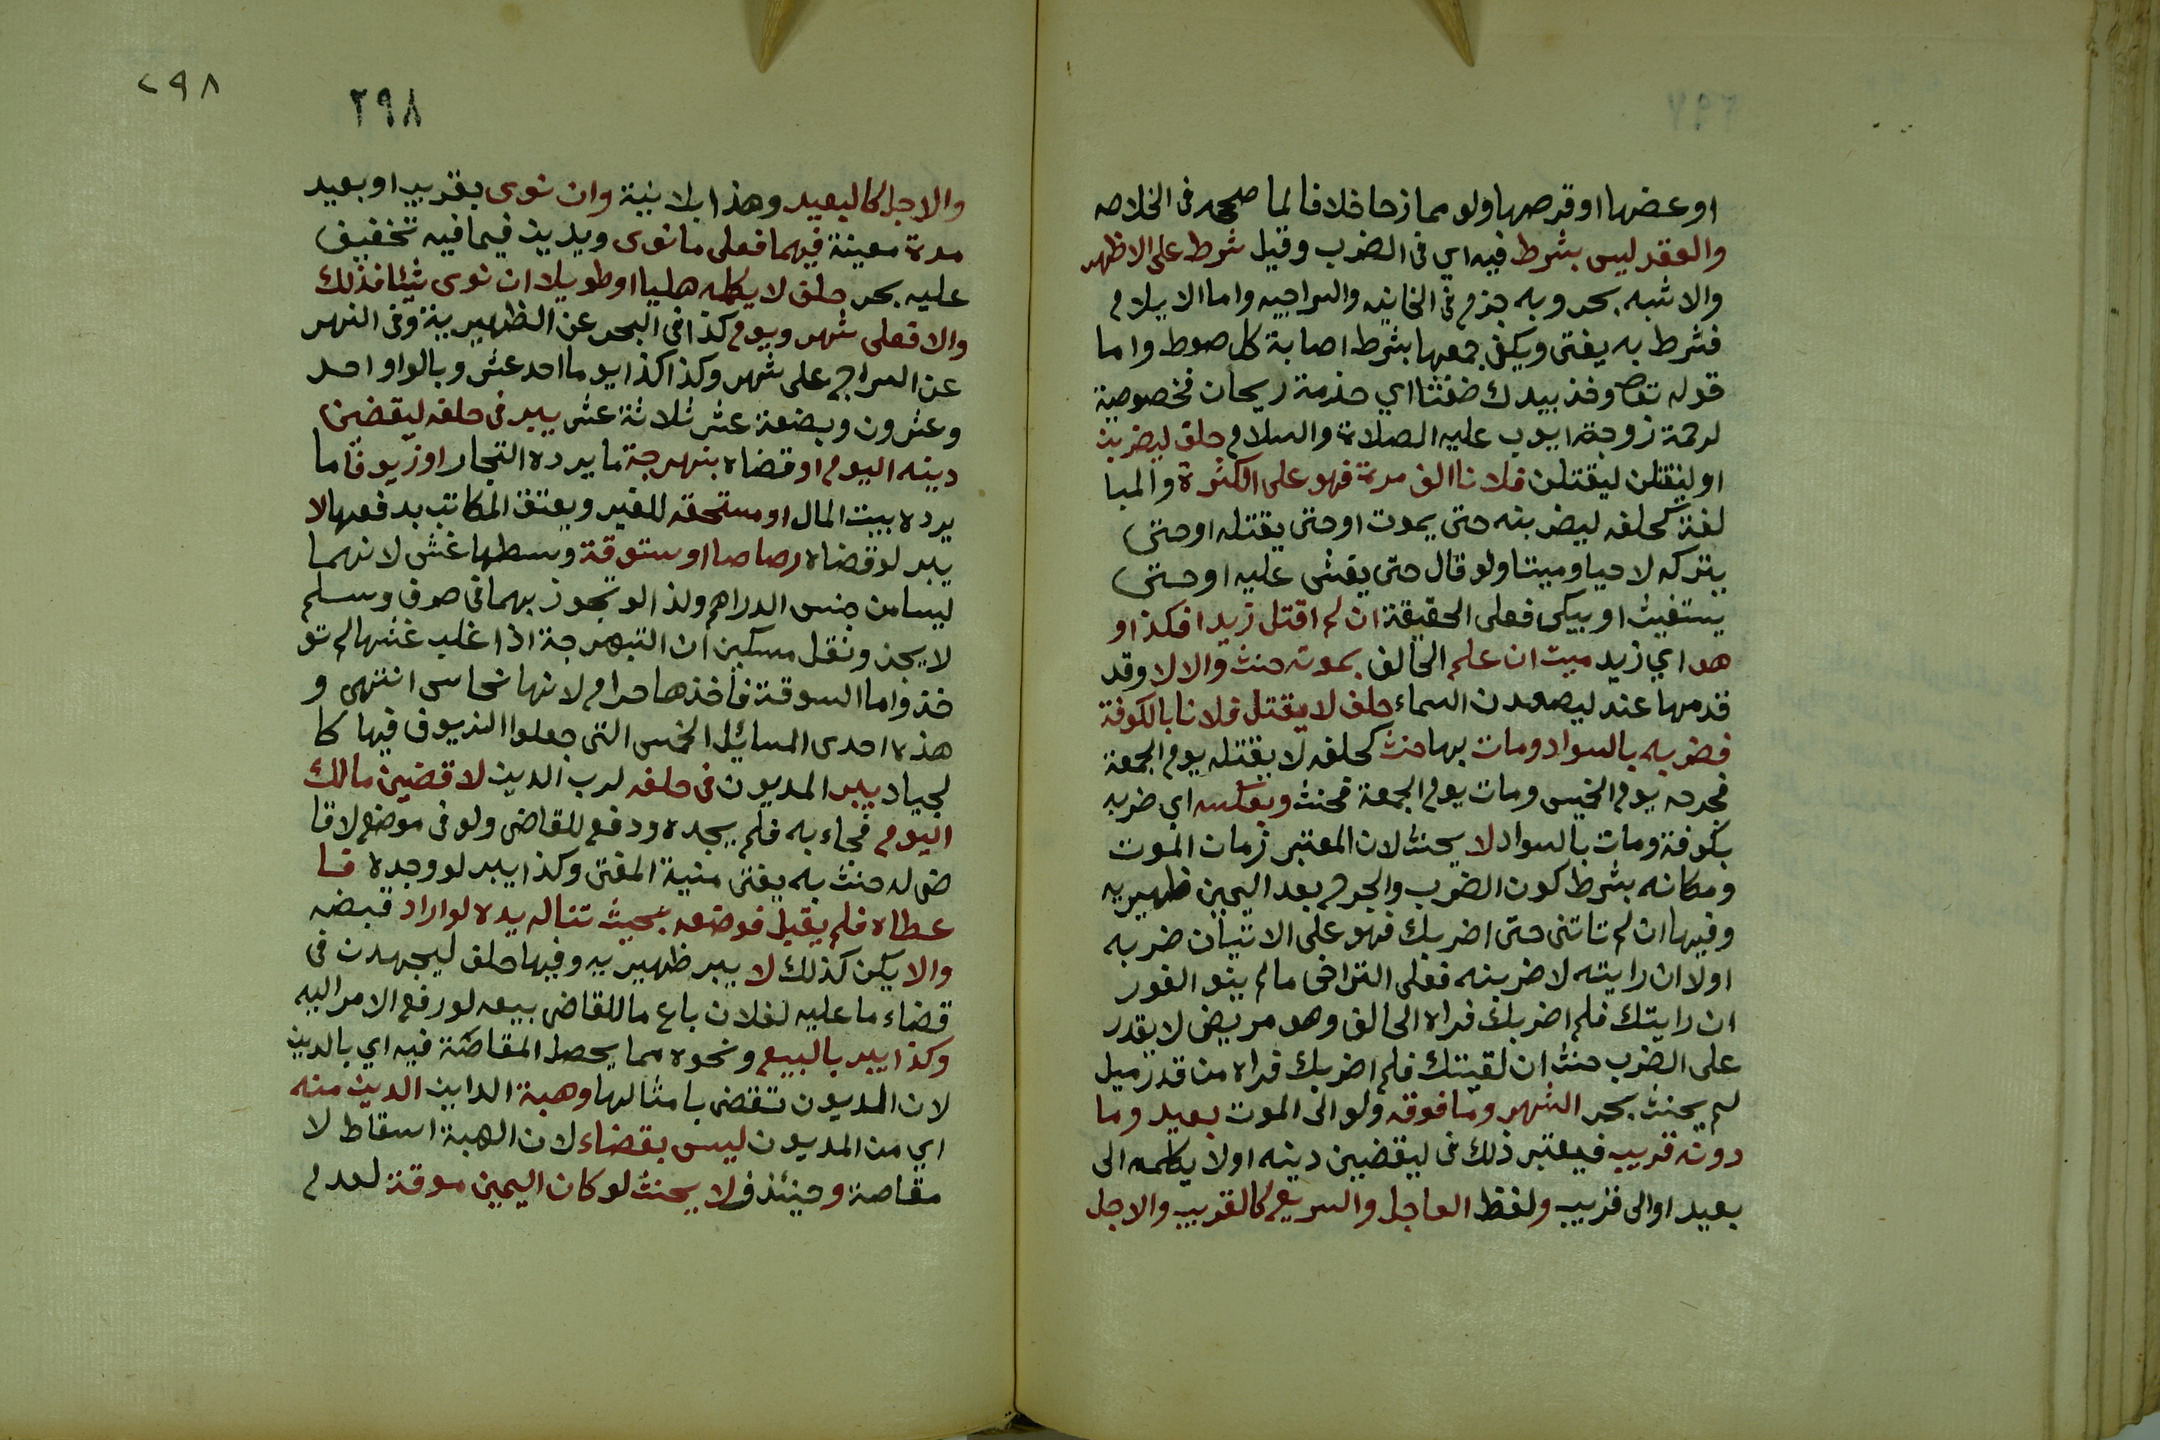 اوعضها اوقرصها ولو ممازحا خلافا لما صححه فى الخلاصه
والعقد ليس بشرط فيه اي فى الضرب وقيل شرط على الاظهر
والاشبه بحر وبه جزم فى الخانيه والسراجيه واما الايلام
فشرط به يفتى ويكفى جمعها بشرط اصابة كل صوط واما
قوله تعا وخذ بيدك ضغثا اي حذمة ريحان فخصوصية
لرحمة زوجة ايوب عليه الصلاة والسلام حلف ليضربن
او ليقتلن ليقتلن فلانا الف مرة فهو على الكثرة والمبا
لغة كحلفه ليضربنه حتى يموت اوحتى يقتله اوحتى
يتركه لاحيا وميتا ولو قال حتى يغشى عليه اوحتى
يستغيث او يبكى فعلى الحقيقة ان لم اقتل زيدا فكذا و
هو اي زيد ميت ان علم الحالف بموته حنث والا لا وقد
قدمها عند ليصعدن السماء حلف لايقتل فلانا بالكوفة
فضربه بالسواد ومات بها حنث كحلفه لايقتله يوم الجمعة
فجرحه يوم الخيس ومات يوم الجمعة فحنث وبعكسه اي ضربه
بكوفة ومات بالسواد لا يحنث لان المعتبر زمان الموت
ومكانه بشرط كون الضرب والجرح بعد اليمين ظهيريه
وفيها ان لم تاتنى حتى اضربك فهو على الاتيان ضربه
اولا ان رايته لاضربنه فعلى التراخى مالم ينو الفور
ان رايتك فلم اضربك فراه الحالف وهو مريض لايقدر
على الضرب حنث ان لقيتك فلم اضربك فراه من قدر ميل
لم يحنث بحر الشهر ومافوقه ولو الى الموت بعيد وما
دونه قريب فيعتبر ذلك فى ليقضين دينه اولا يكلمه الى
بعيد اوالى قريب ولفظ العاجل والسريع كالقريب والاجل
٢٩٨
٢٩٨
والاجل كالبعيد وهذا بلانية وان نوى بقريب اوبعيد
مدة معينة فيهما فعلى مانوى ويدين فيمافيه تخفيف
عليه بحر حلف لايكلمه مليا اوطويلا ان نوى شيئا فذلك
والا فعلى شهر ويوم كذا فى البحر عن الظهيرية وفى النهر
عن السراج على شهر وكذا كذا يوما احد عشر وبالواو احد
وعشرون وبضعة عشر ثلاثة عشر يبر فى حلفه ليقضين
دينه اليوم اوقضاه بنهرجة ما يرده التجار اوزيوفا ما
يرده بيت المال اومستحقه للغير ويعتق المكاتب بدفعها لا
يبر لو قضاه رصاصا اوستوقة وسطها غش لانهما
ليسا من جنس الدراهم ولذا لو تجوز بهما فى صرف وسلم
لايجز ونقل مسكين ان النبهرجة اذا غلب غشها لم تو
خذ واما الستوقة فاخذها حرام لانها نحاس انتهى و
هذه احدى المسائل الخمس التى جعلوا الزيوف فيها كا
لجياد يبر المديون فى حلفه لرب الدين لاقضين مالك
اليوم فجاء به فلم يجده ودفع للقاضى ولو فى موضع لاقا
ضى له حنث به يفتى منية المفتى وكذا يبر لو وجده فا
عطاه فلم يقبل فوضعه بحيث تناله يده لواراد قبضه
والا يكن كذلك لا يبر ظهيريه وفيها حلف ليجهدن فى
قضاء ما عليه لفلان باع ما للقاضى بيعه لو رفع الامر اليه
وكذا يبر بالبيع ونحوه مما يحصل المقاصة فيه اي بالدين
لان الديون تقضى بامثالها وهبة الداين الدين منه
اي من المديون ليس بقضاء لان الهبة اسقاط لا
مقاصة وحينئذ فلا يحنث لو كان اليمين موقتة لعدم